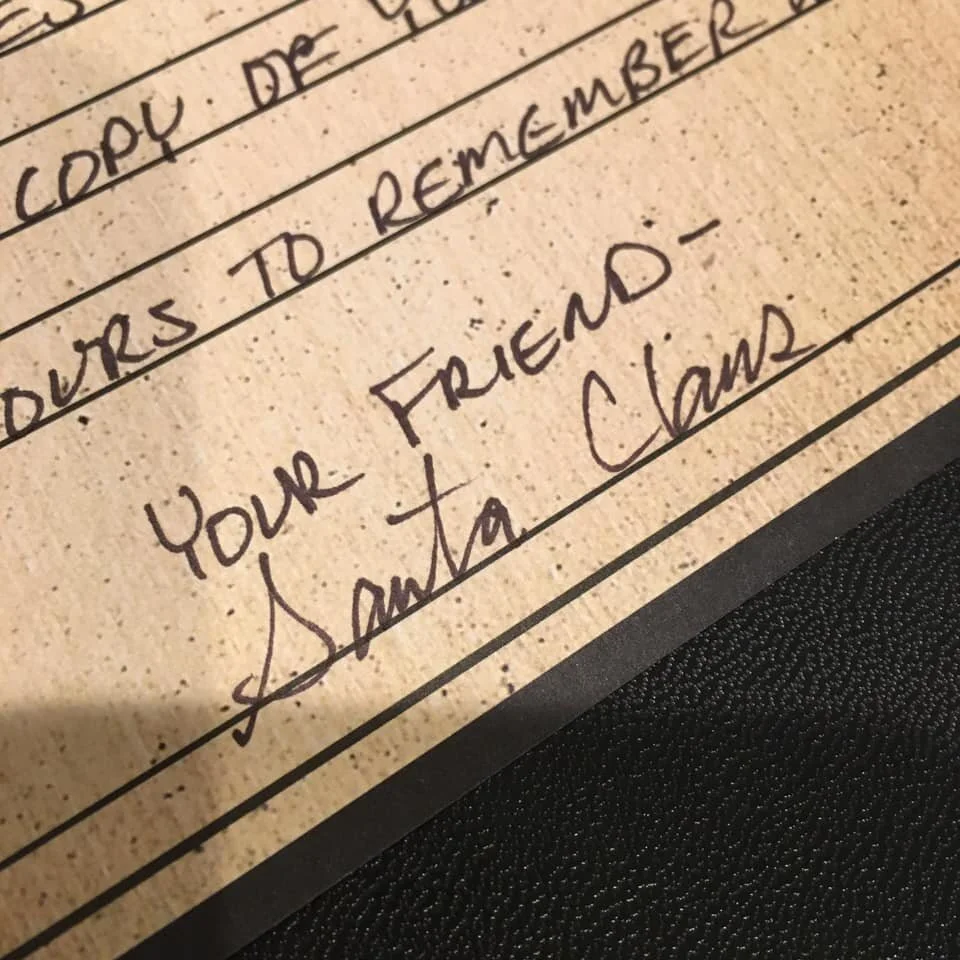 COPY OF
OURS TO REMEMBER
YOUR FRIEND-
Santa Claus.